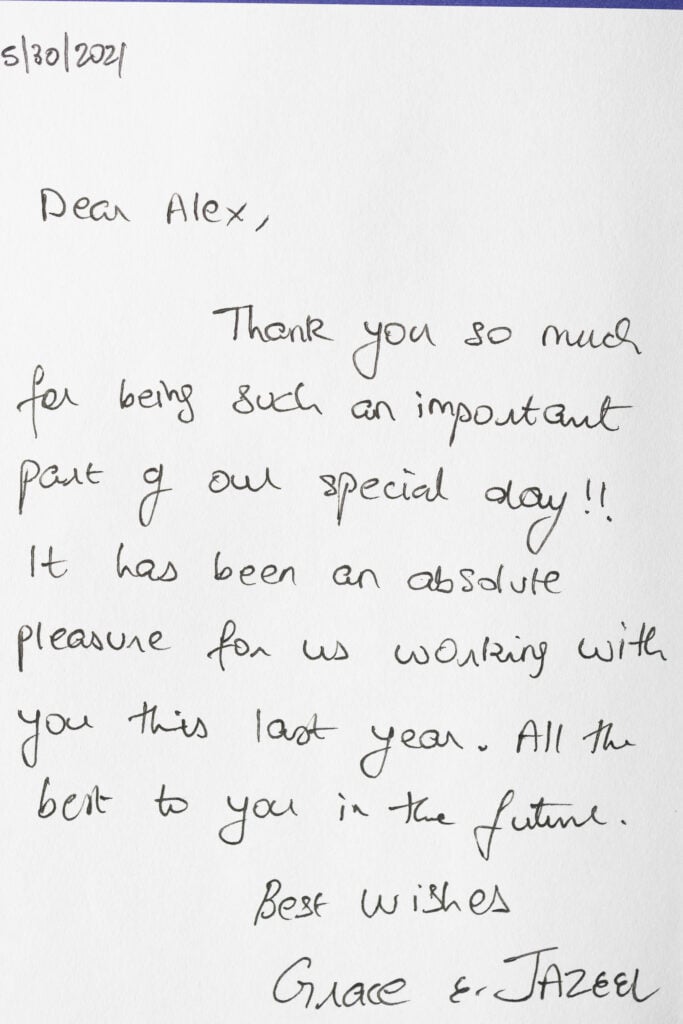 5/30/2021
Dear Alex,
Thank you so much
for being such an important
part of our special day!!
It has been an absolute
pleasure for us working with
you this last year. All the
best to you in the future.
Best wishes
Grace & JAZEEL